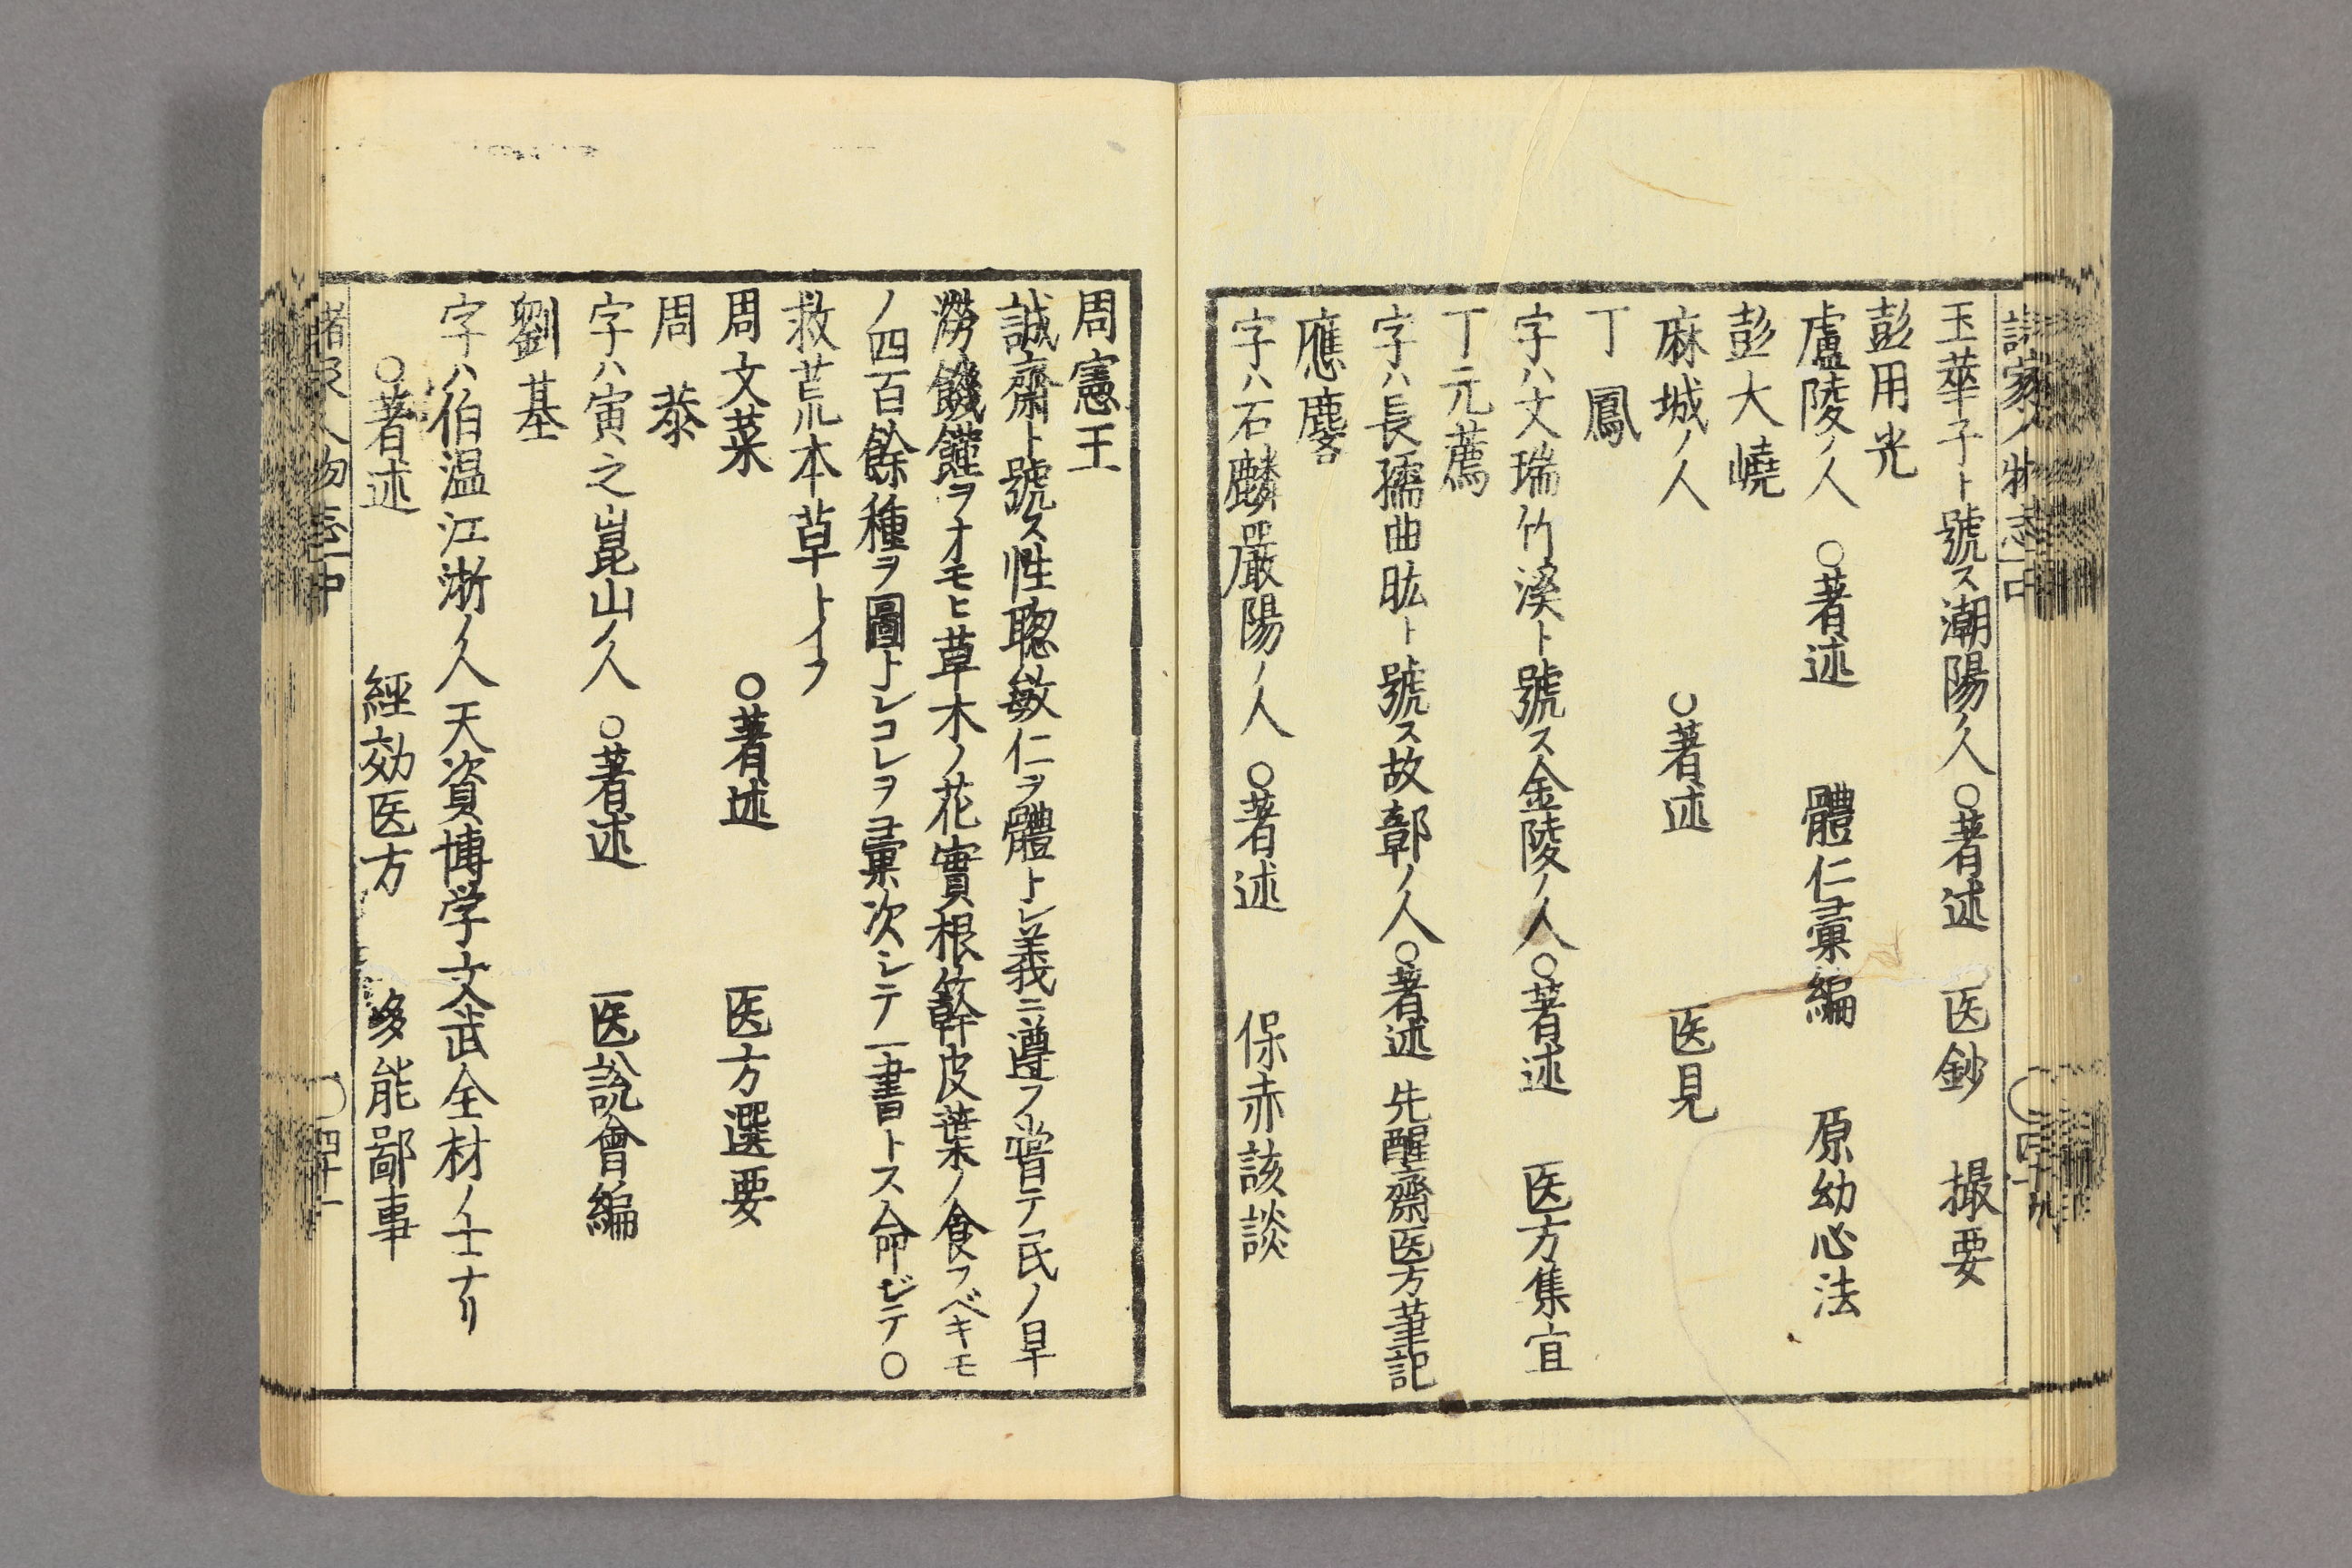 玉華子ト號ス潮陽ノ人 ○著述 医鈔 撮要
彭用光
盧陵ノ人 ○著述 體仁彙編 原幼心法
彭大嶢
麻城ノ人 ○著述 医見
丁鳳
字ハ文瑞竹溪ト號ス金陵ノ人○著述 医方集宜
丁元薦
字ハ長孺曲肱ト號ス故鄣ノ人○著述 先醒齋医方筆記
應𪋻
字ハ石麟嚴陽ノ人 ○著述 保赤該談
周憲王
誠齋ト號ス性聰敏仁ヲ體トシ義ニ遵フ嘗テ民ノ旱
澇饑饉ヲオモヒ草木ノ花實根幹皮葉ノ食フベキモ
ノ四百餘種ヲ圖トシコレヲ彙次シテ一書トス命ジテ○
救荒本草トイフ
周文菜 ○著述 医方選要
周恭
字ハ寅之崑山ノ人 ○著述 医說會編
劉基
字ハ伯温江浙ノ人天資博学文武全材ノ士ナリ
○著述 經効医方 多能鄙事